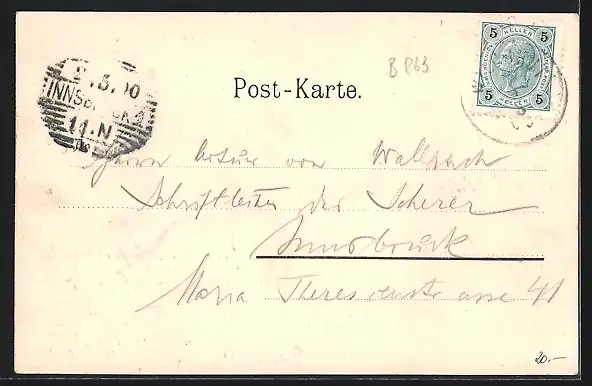 B P63
5 HELLER 5
5 HELLER 5
Post-Karte.
2.3.00
INNSBRUCK 1
11.N
Herrn Artur von Wallpach
Schriftleiter des Scherer
Innsbruck
Maria Theresienstrasse 41
20.-